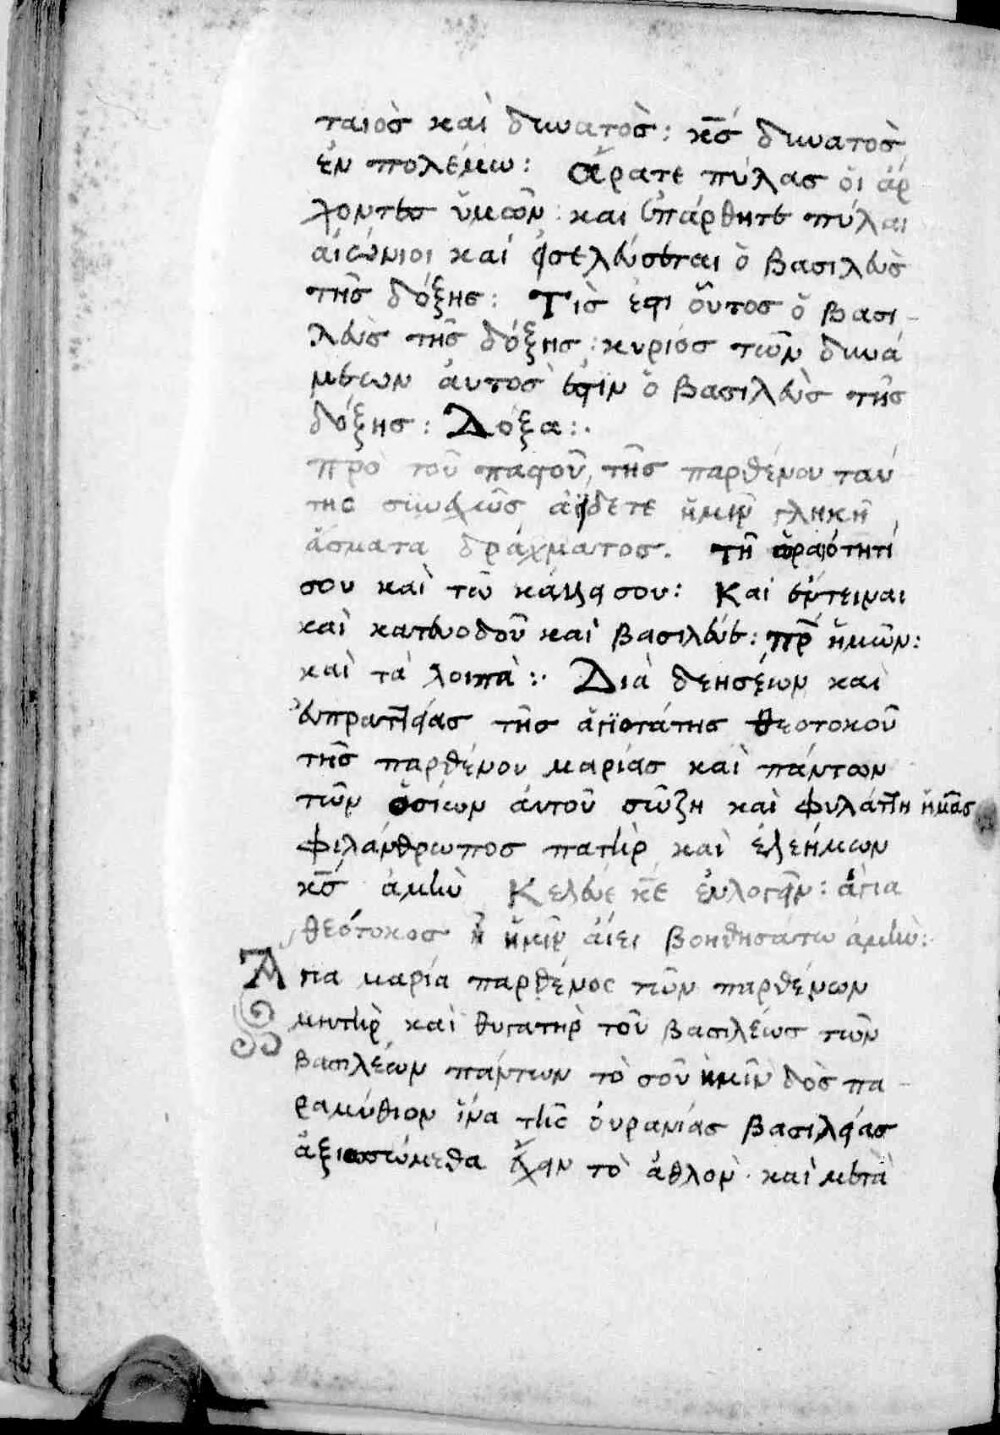 ταιὸς καὶ δυνατὸς: κ̅ς̅ δυνατὸς
ἐν πολέμω: ἄρατε πύλας ὅι ἀρ
χοντες ὕμῶν: και ἐπάρθητε πύλαι
αἰώνιοι καὶ εἰσελεύσεται ὁ βασιλεὺς
τῆς δόξης: Τὶς ἐστι οὗτος ὁ βασι-
λεὺς τῆς δόξης: κυριός τῶν δυνά
μεων ἀυτοσ ἐστιν ὁ βασιλεὺς τῆς
δόξης: Δόξα:·
πρὸ τοῦ παστοῦ, τῆς παρθένου ταύ
της συνεχῶς ἀίδετε ἡμιν γληκῆ
ἄσματα δράχματος. τῆ ὡραιότητί
σου καὶ τῶ κάλλει σου: Καὶ ἔντειναι
καὶ κατευοδοῦ καὶ βασιλεύε: π̅ρ̅ ἡμῶν:
καὶ τὰ λοιπὰ:· Διὰ δεησέων καὶ
ἐυπραττείας τῆς ἁγιοτάτης θεοτοκοῦ
τῆς παρθένου μαρίας καὶ πάντων
τῶν ὁσίων ἀυτοῦ σῶζη καὶ φυλάττη ἡμᾶς
φιλάνθρωπος πατὴρ καὶ ἐλεήμων
κ̅ς̅ ἀμὴν Κελεύε κ̅ε̅ ἐυλογεῖν: ἁγία
θεότοκος ἡ ἡμῖν ἀίει βοηθησάτω ἀμὴν:
Ἁγια μαρία παρθένος τῶν παρθένων
μητὴρ καὶ θυγατὴρ τοῦ βασιλέως τῶν
βασιλέων πάντων τὸ σοῦ ἡμῖν δὸς πα-
ραμύθιον ἵνα τῆς ὀυρανίας βασιλείας
ἀξιωσώμεθα ἔχειν τὸ ἄθλον· καὶ μετὰ